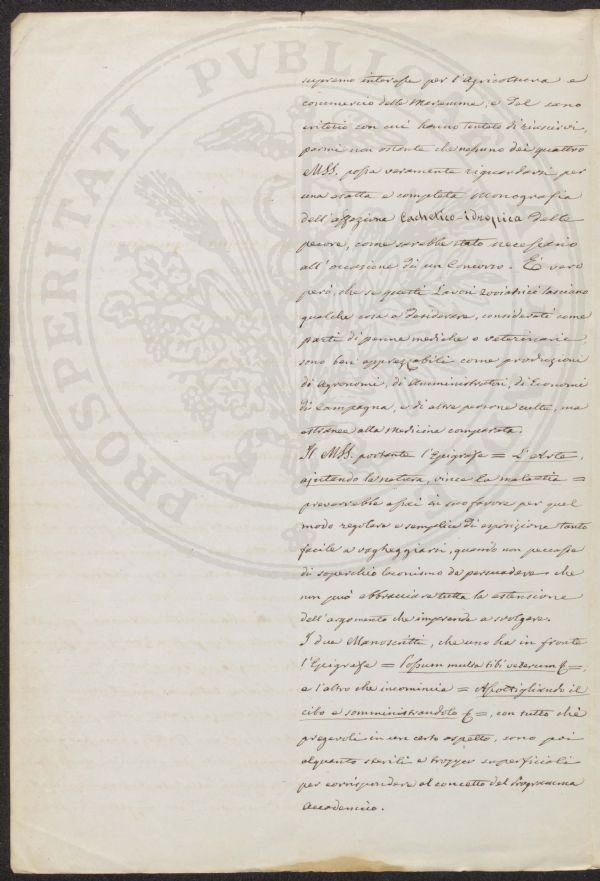 supremo interesse per l'Agricoltura e
commercio delle Maremme; e del sano
criterio con cui hanno tentato di riuscirvi,
parmi non ostante che nessuno dei quattro
MSS. possa veramente riguardarsi per
una esatta e completa Monografia
dell'affezione Cachetico-idropica delle
pecore, come sarebbe stato necessario
all'occasione di un Concorso. È vero
però, che se questi Lavori zooiatrici lasciano
qualche cosa a desiderare, considerati come
parti di penne mediche o veterinarie,
sono ben apprezzabili come produzioni
di Agronomi, di Amministratori, di Economi
di Campagna, e di altre persone culte, ma
estranee alla Medicina comparata.
Il MSS. portante l'Epigrafe = L'Arte,
ajutando la natura, vince la malattia =
prevarrebbe assai in suo favore per quel
modo regolare e semplice di esposizione tanto
facile a vagheggiarsi, quando non peccasse
di soperchio laconismo da persuadere che
non può abbracciare tutta la estensione
dell'argomento che imprende a svolgere.
I due Manoscritti, che uno ha in fronte
l'Epigrafe = Possum multa tibi veterum &=,
e l'altro che incomincia = Assottigliando il
cibo e somministrandolo &=, con tutto chè
pregevoli in un certo aspetto, sono poi
alquanto sterili e troppo superficiali
per corrispondere al concetto del Programma
Accademico.
PROSPERITATI PVBLICAE